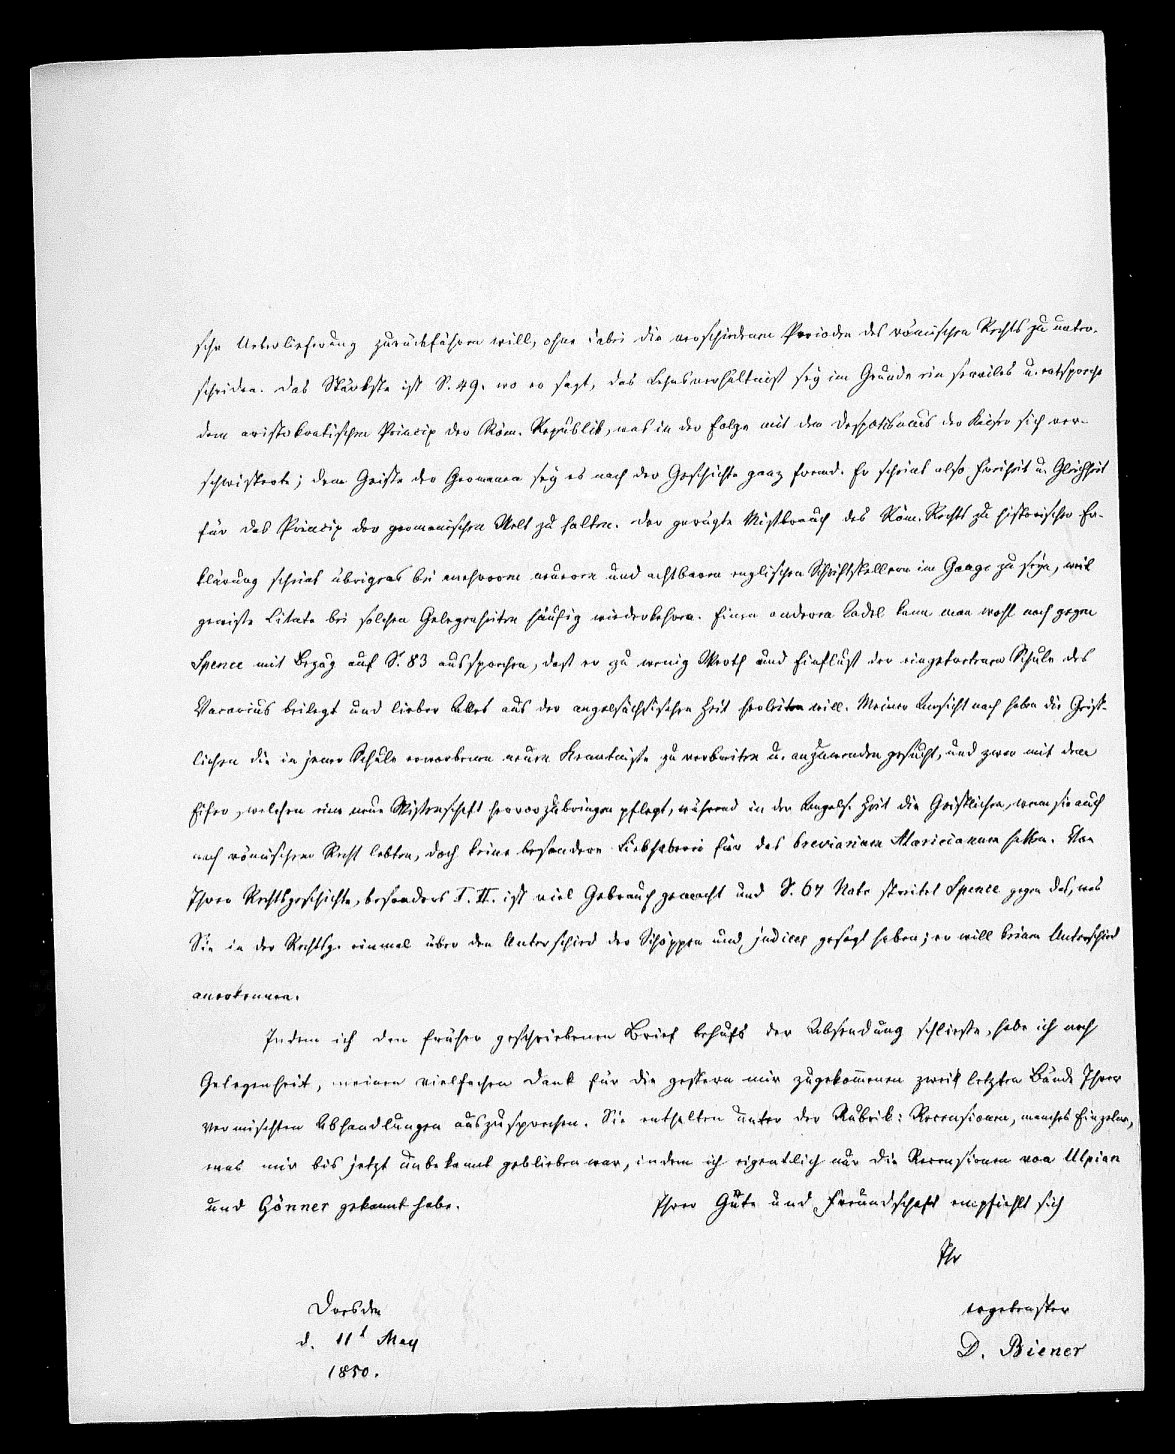 sche Ueberlieferung zurückführen will, ohne dabei die verschiedenen Perioden des römischen Rechts zu unter-
scheiden. Das Stärkste ist S. 49. wo er sagt, das Lehnsverhältniß sey im Grunde ein serviles u. entspreche
dem aristokratischen Princip der Röm. Republik, was in der Folge mit dem Despotismus der Kaiser sich ver-
schwisterte; dem Geiste der Germanen sey es nach der Geschichte ganz fremd. Er scheint also Freiheit u. Gleichheit
für das Princip der germanischen Welt zu halten. Der gerügte Mißbrauch des Röm. Rechts zu historischer Er-
klärung scheint übrigens bei mehreren neueren und achtbaren englischen Schriftstellern im Gange zu seyn, weil
gewisse Citate bei solchen Gelegenheiten häufig wiederkehren. Einen anderen Tadel kann man wohl noch gegen
Spence mit Bezug auf S. 83 aussprechen, daß er zu wenig Werth und Einfluß der eingetretenen Schule des
Vacarius beilegt und lieber Alles aus der angelsächsischen Zeit herleiten will. Meiner Ansicht nach haben die Geist-
lichen die in jener Schule erworbenen neuen Kenntnisse zu verbreiten u. anzuwenden gesucht, und zwar mit dem
Eifer, welchen eine neue Wissenschaft hervorzubringen pflegt, während in der Angels. Zeit die Geistlichen, wenn sie auch
nach römischem Recht lebten, doch keine besondere Liebhaberei für das breviarium Alaricianum hatten. Von
Ihrer Rechtsgeschichte, besonders T. II. ist viel Gebrauch gemacht und S. 67 Note streitet Spence gegen das, was
Sie in der Rechtsg. einmal über den Unterschied der Schöppen und judices gesagt haben; er will keinen Unterschied
anerkennen.
Indem ich den früher geschriebenen Brief behufs der Absendung schließe, habe ich noch
Gelegenheit, meinen vielfachen Dank für die gestern mir zugekommenen zwei letzten Bände Ihrer
vermischten Abhandlungen auszusprechen. Sie enthalten unter der Rubrik: Recensionen, manches Einzelne,
was mir bis jetzt unbekannt geblieben war, indem ich eigentlich nur die Recensionen von Ulpian
und Gönner gekannt habe. Ihrer Güte und Freundschaft empfiehlt sich
Ihr
ergebenster
D. Biener
Dresden
d. 11t May
1850.